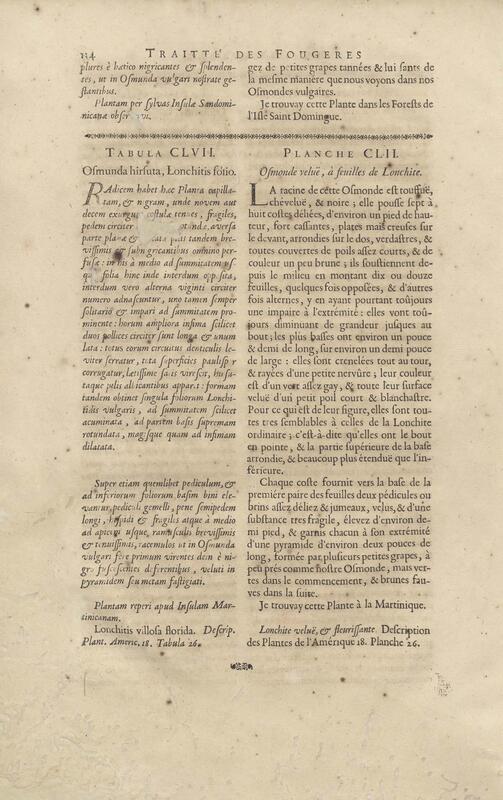 134 TRAITTÉ DES FOUGERES
plures è bætico nigricantes & splenden-
tes, ut in Osmunda vulgari nostrate ge-
stantibus.
Plantam per sylvas Insulæ Sandomi-
nicanæ
TABULA CLVII.
Osmunda hirsuta, Lonchitis folio.
RAdicem habet hæc Planta capilla-
tam, & nigram, unde novem aut
decem exurgunt costulæ tenues, fragiles,
pedem circiter aversa
parte planæ & tandem bre-
vissimis & subnigricantibus omnino per-
fusæ: in his à medio ad summitatem
folia hinc inde interdum opposita,
interdum vero alterna viginti circiter
numero adnascuntur, uno tamen semper
solitario & impari ad summitatem pro-
minente: horum ampliora infima scilicet
duos pollices circiter sunt longa & unum
lata: totus eorum circuitus denticulis le-
viter serratur, tota superficies paulisper
corrugatur, lætissime satis virescit, hirsu-
taque pilis albicantibus apparet: formam
tandem obtinet singula foliorum Lonchi-
tidis vulgaris, ad summitatem scilicet
acuminata, ad partem basis supremam
rotundata, magisque quam ad infimam
dilatata.
Super etiam quemlibet pediculum, &
ad inferiorum foliorum basim bini ele-
vantur, pediculi gemelli, pene semipedem
longi, hispidi & fragiles atque à medio
ad apicem usque, ramusculis brevissimis
& tenuissimis, racemulos ut in Osmunda
vulgari fere primum virentes dein è ni-
gro fuscescentes deferentibus, veluti in
pyramidem seu metam fastigiati.
Plantam reperi apud Insulam Mar-
tinicanam.
Lonchitis villosa florida. Descrip.
Plant. Americ. 18. Tabula 26.
gez de petites grapes tannées & luisants de
la mesme maniére que nous voyons dans nos
Osmondes vulgaires.
Je trouvay cette Plante dans les Forests de
l'Isle Saint Domingue.
PLANCHE CLII.
Osmonde veluë, à feuilles de Lonchite.
LA racine de cette Osmonde est touffuë,
cheveluë, & noire; elle pousse sept à
huit costes déliées, d'environ un pied de hau-
teur, fort cassantes, plates mais creuses sur
le devant, arrondies sur le dos, verdastres, &
toutes couvertes de poils assez courts, & de
couleur un peu brune; ils soustiennent de-
puis le milieu en montant dix ou douze
feuilles, quelques fois opposées, & d'autres
fois alternes, y en ayant pourtant toûjours
une impaire à l'extrémité: elles vont toû-
jours diminuant de grandeur jusques au
bout; les plus basses ont environ un pouce
& demi de long, sur environ un demi pouce
de large: elles sont crenelées tout au tour,
& rayées d'une petite nervûre; leur couleur
est d'un vert assez gay, & toute leur surface
veluë d'un petit poil court & blanchastre.
Pour ce qui est de leur figure, elles sont tou-
tes tres semblables à celles de la Lonchite
ordinaire; c'est-à-dite qu'elles ont le bout
en pointe, & la partie supérieure de la base
arrondie, & beaucoup plus étenduë que l'in-
férieure.
Chaque coste fournit vers la base de la
premiére paire des feuilles deux pédicules ou
brins assez déliez & jumeaux, velus, & d'une
substance tres fragile, élevez d'environ de-
mi pied, & garnis chacun à son extrémité
d'une pyramide d'environ deux pouces de
long, formée par plusieurs petites grapes, à
peu prés comme nostre Osmonde, mais ver-
tes dans le commencement, & brunes fau-
ves dans la suite.
Je trouvay cette Plante à la Martinique.
Lonchite veluë, & fleurissante. Description
des Plantes de l'Amérique 18. Planche 26.